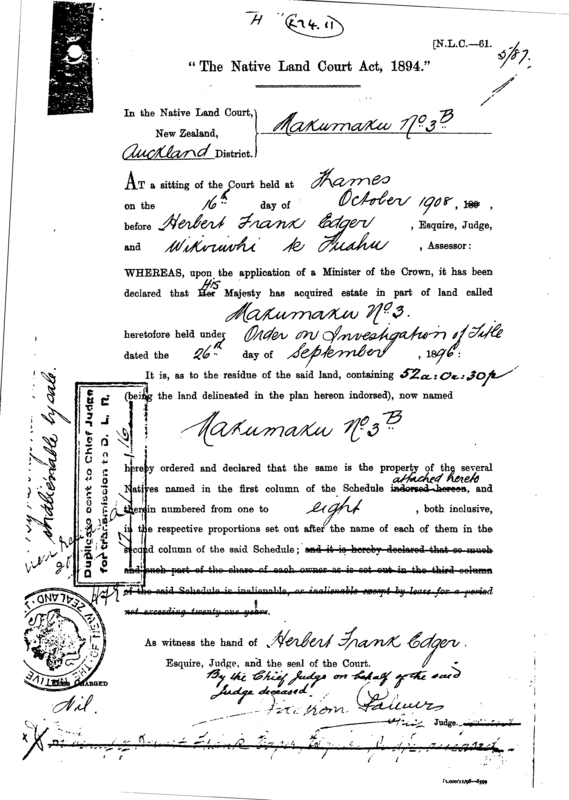 H (E74.11)
[N.L.C.—61.
5/87.
"The Native Land Court Act, 1894."
In the Native Land Court,
New Zealand,
Auckland District.
Makumaku No. 3B
AT a sitting of the Court held at Thames
on the 16th day of October 1908, 189 ,
before Herbert Frank Edger , Esquire, Judge,
and , Assessor:
WHEREAS, upon the application of a Minister of the Crown, it has been
His
declared that Her Majesty has acquired estate in part of land called
Makumaku No. 3.
heretofore held under Order on Investigation of Title
dated the 26th day of September , 1896:
It is, as to the residue of the said land, containing 52a:0r:30p
(being the land delineated in the plan hereon indorsed), now named
Makumaku No. 3B
hereby ordered and declared that the same is the property of the several
attached hereto
Natives named in the first column of the Schedule indorsed hereon, and
therein numbered from one to eight , both inclusive,
in the respective proportions set out after the name of each of them in the
second column of the said Schedule; and it is hereby declared that so much
and such part of the share of each owner as is set out in the third column
of the said Schedule is inalienable, or inalienable except by lease for a period
not exceeding twenty-one years.
As witness the hand of Herbert Frank Edger
Esquire, Judge, and the seal of the Court.
By the Chief Judge on behalf of the said
Judge deceased.
Judge.
inalienable by sale.
Duplicate sent to Chief Judge
for transmission to D. L. R.
NEW ZEALAND
CHARGED
Nil.
1,000/11/98—6399